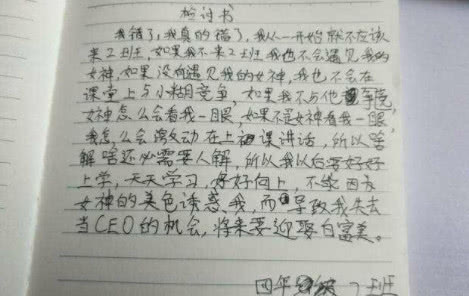 检讨书
我错了,我真的错了,我从一开始就不应该
来2班,如果我不来2班我也不会遇见我的
女神,如果没有遇见我的女神,我也不会在
课堂上与小胡竞争,如果我不与他争宠,
女神怎么会看我一眼,如果不是女神看我一眼,
我怎么会激动在上课讲话,所以
解 还必需要人解,所以我以后要好好
上学,天天学习,好好向上,不能因为
女神的美色诱惑我,而导致我失去
当CEO的机会,将来要迎娶白富美。
四年级2班